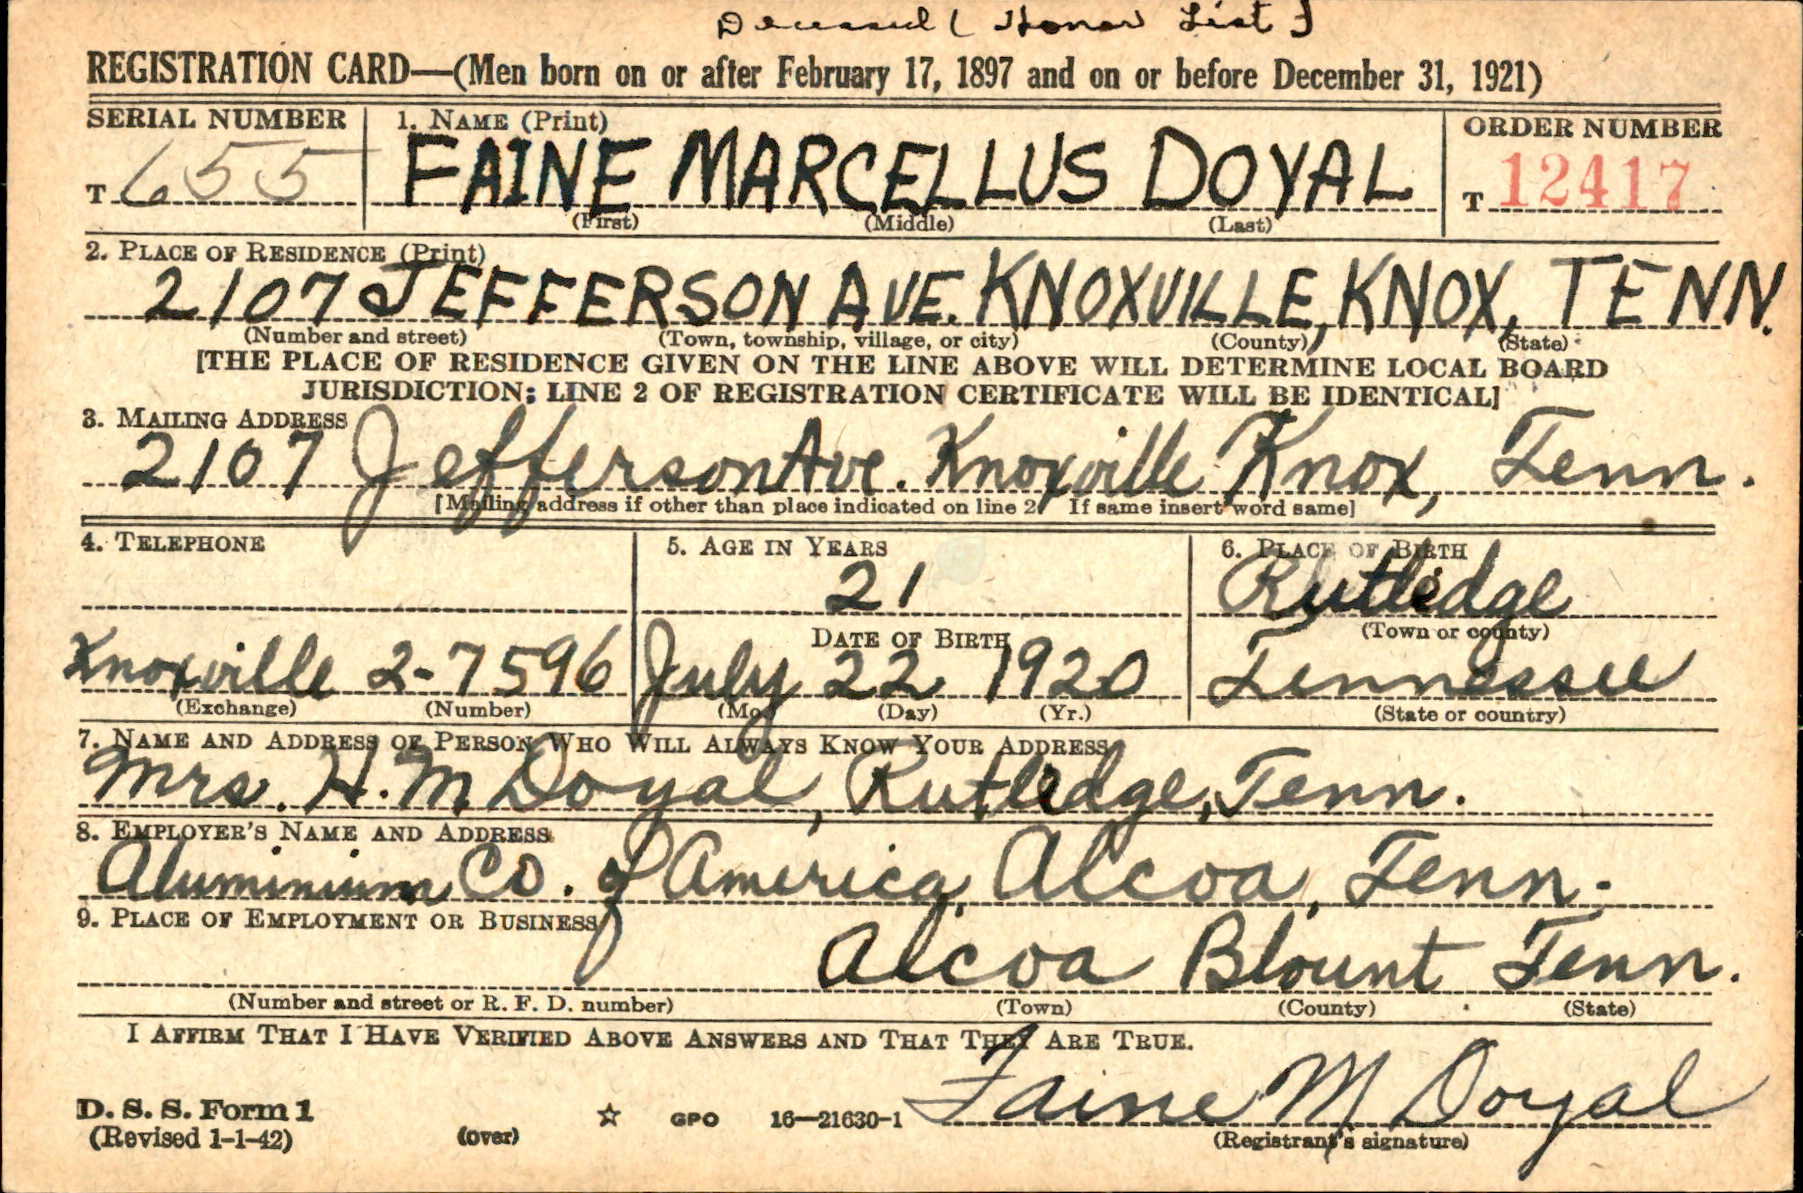 Deceased (Honor List)
REGISTRATION CARD—(Men born on or after February 17, 1897 and on or before December 31, 1921)
SERIAL NUMBER 1. NAME (Print) ORDER NUMBER
T 655 FAINE MARCELLUS DOYAL T 12417
(First) (Middle) (Last)
2. PLACE OF RESIDENCE (Print)
2107 JEFFERSON AVE. KNOXVILLE, KNOX, TENN.
(Number and street) (Town, township, village, or city) (County) (State)
[THE PLACE OF RESIDENCE GIVEN ON THE LINE ABOVE WILL DETERMINE LOCAL BOARD
JURISDICTION; LINE 2 OF REGISTRATION CERTIFICATE WILL BE IDENTICAL]
3. MAILING ADDRESS
2107 Jefferson Ave. Knoxville Knox, Tenn.
[Mailing address if other than place indicated on line 2. If same insert word same]
4. TELEPHONE 5. AGE IN YEARS 6. PLACE OF BIRTH
21 Rutledge
DATE OF BIRTH (Town or county)
Knoxville 2-7596 July 22 1920 Tennessee
(Exchange) (Number) (Mo.) (Day) (Yr.) (State or country)
7. NAME AND ADDRESS OF PERSON WHO WILL ALWAYS KNOW YOUR ADDRESS
Mrs. H. M Doyal, Rutledge, Tenn.
8. EMPLOYER'S NAME AND ADDRESS
Aluminium Co. of America, Alcoa, Tenn.
9. PLACE OF EMPLOYMENT OR BUSINESS
Alcoa Blount Tenn.
(Number and street or R. F. D. number) (Town) (County) (State)
I AFFIRM THAT I HAVE VERIFIED ABOVE ANSWERS AND THAT THEY ARE TRUE.
D. S. S. Form 1 GPO 16—21630-1 Faine M Doyal
(Revised 1-1-42) (over) (Registrant's signature)